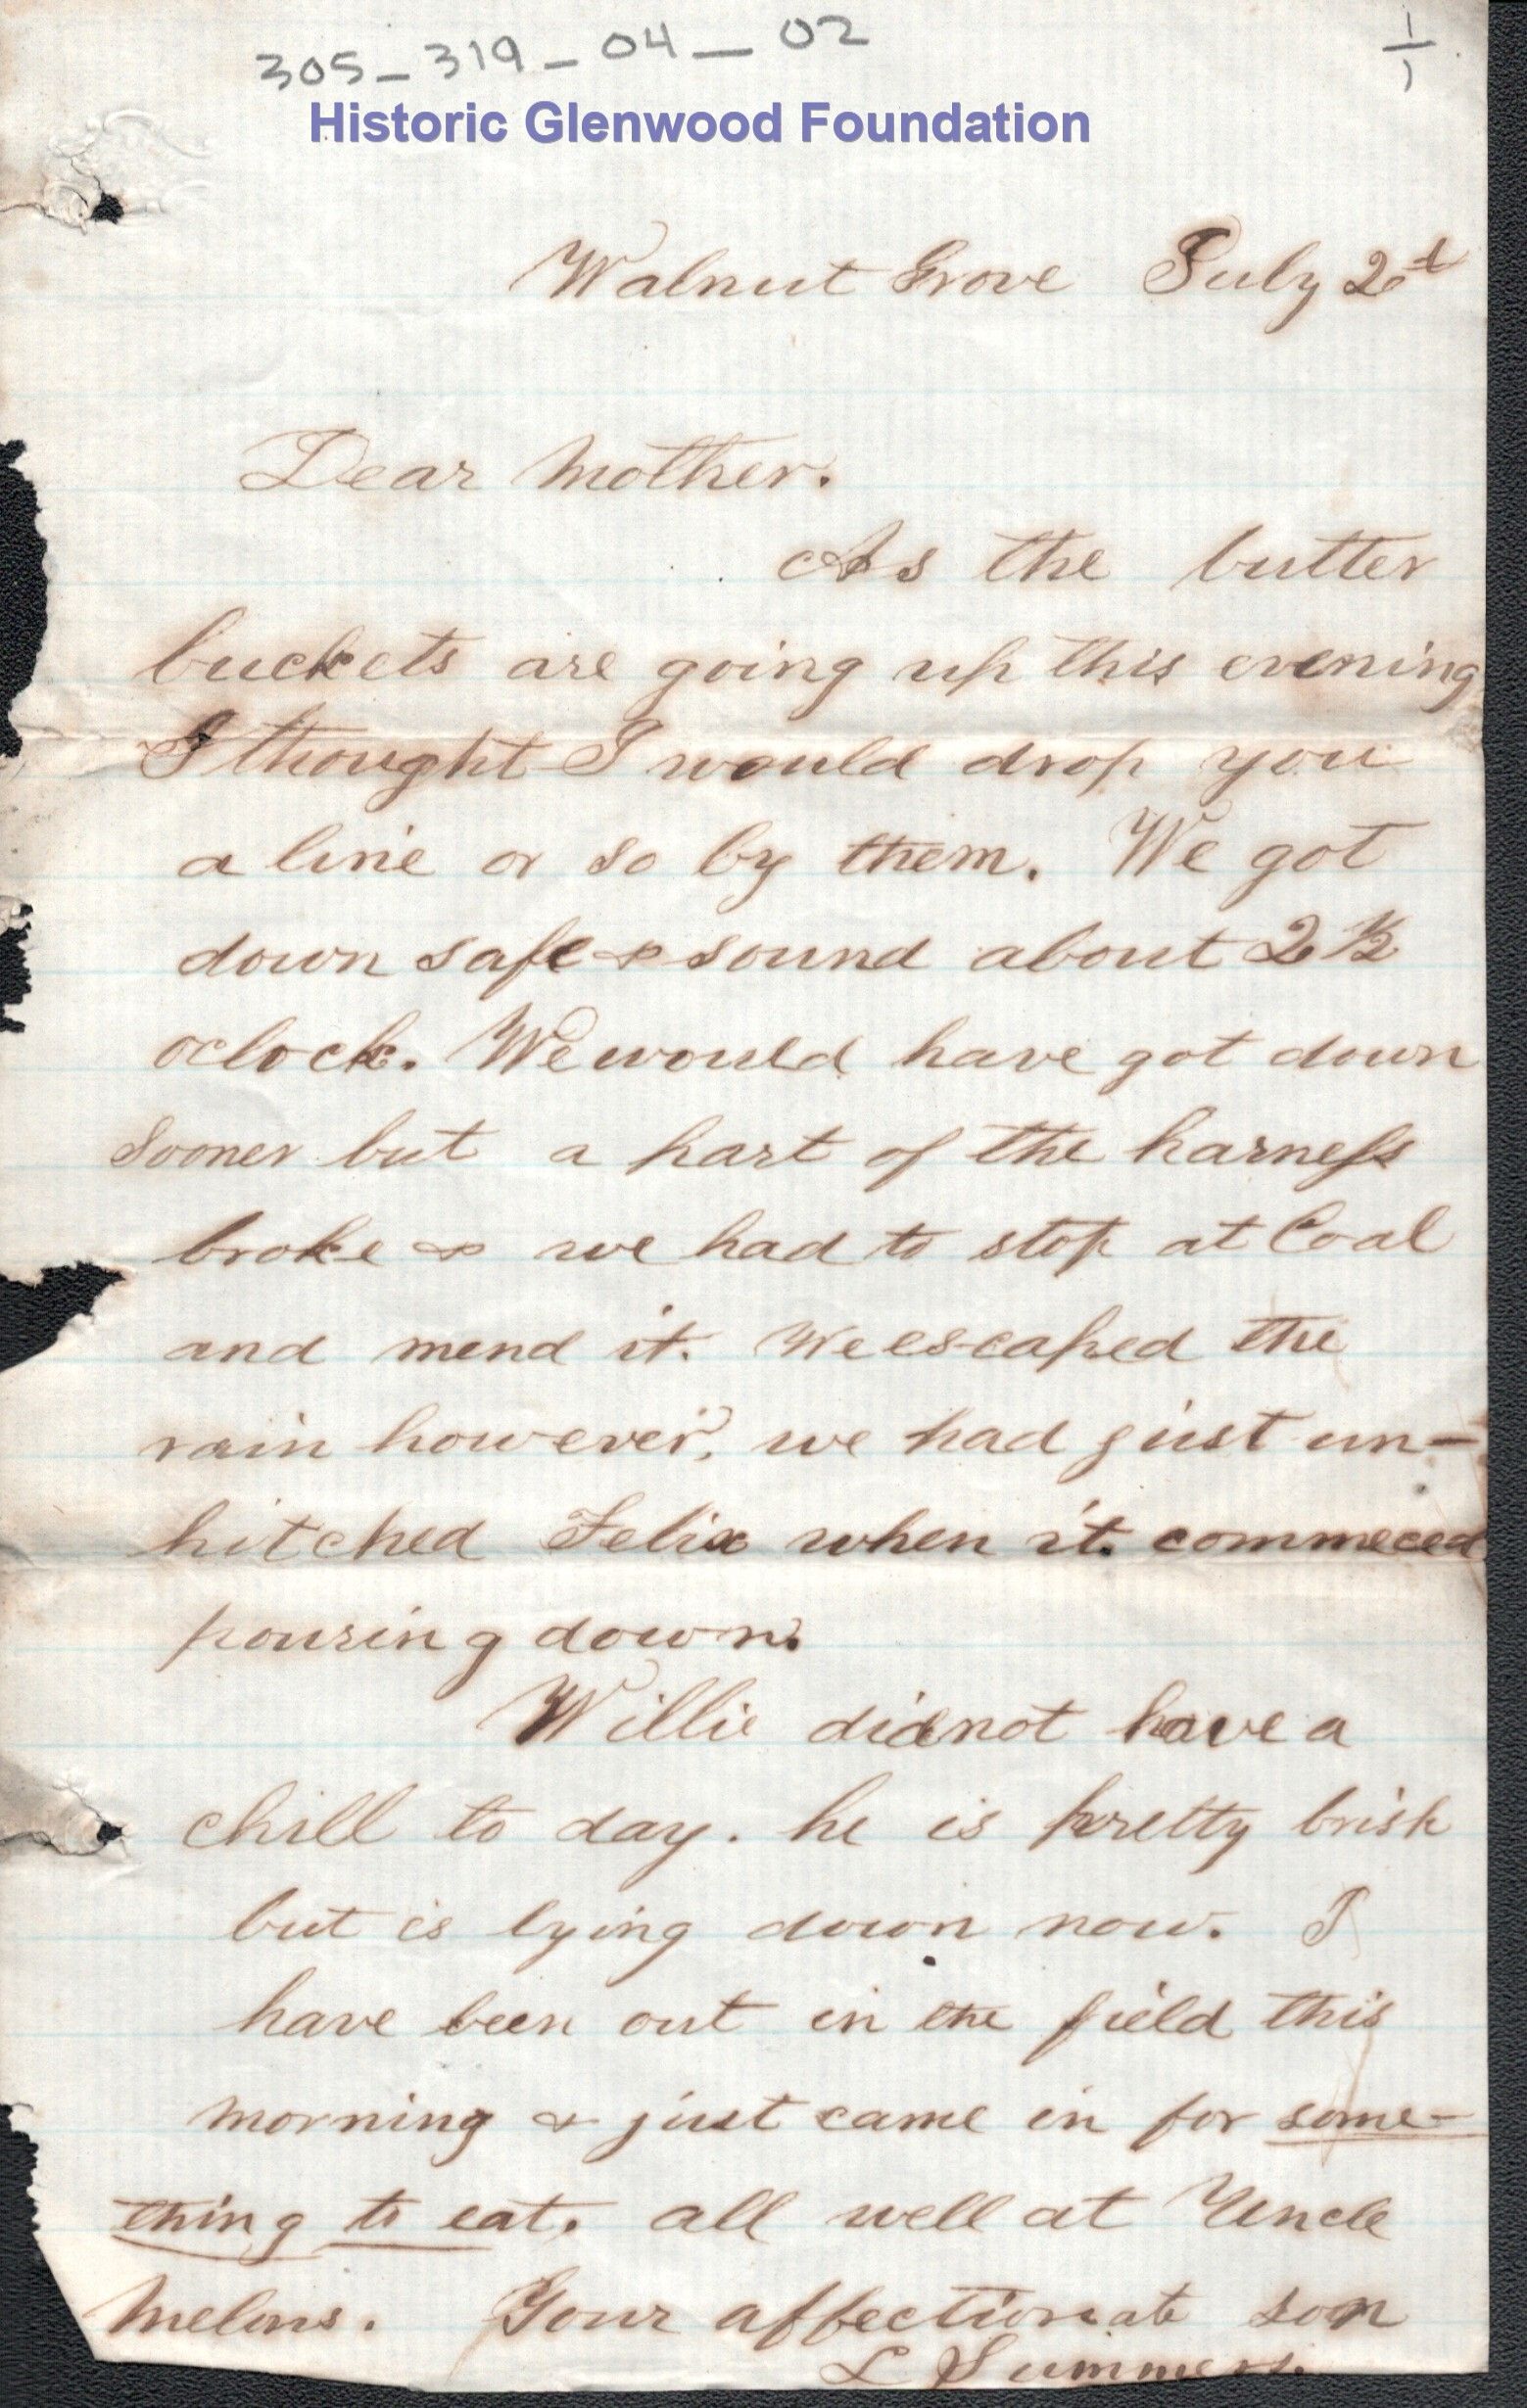 305-319-04-02
1/1
Historic Glenwood Foundation
Walnut Grove July 2d
Dear Mother.
As the butter
buckets are going up this evening
I thought I would drop you
a line or so by them. We got
down safe & sound about 2 1/2
oclock. We would have got down
sooner but a part of the harness
broke & we had to stop at Coal
and mend it. We escaped the
rain however, we had just un-
hitched Felix when it commeced
pouring down.
Willie did not have a
chill to day. he is pretty brisk
but is lying down now. I
have been out in the field this
morning & just came in for some-
thing to eat. all well at Uncle
Melons. Your affectionate son
L Summers.